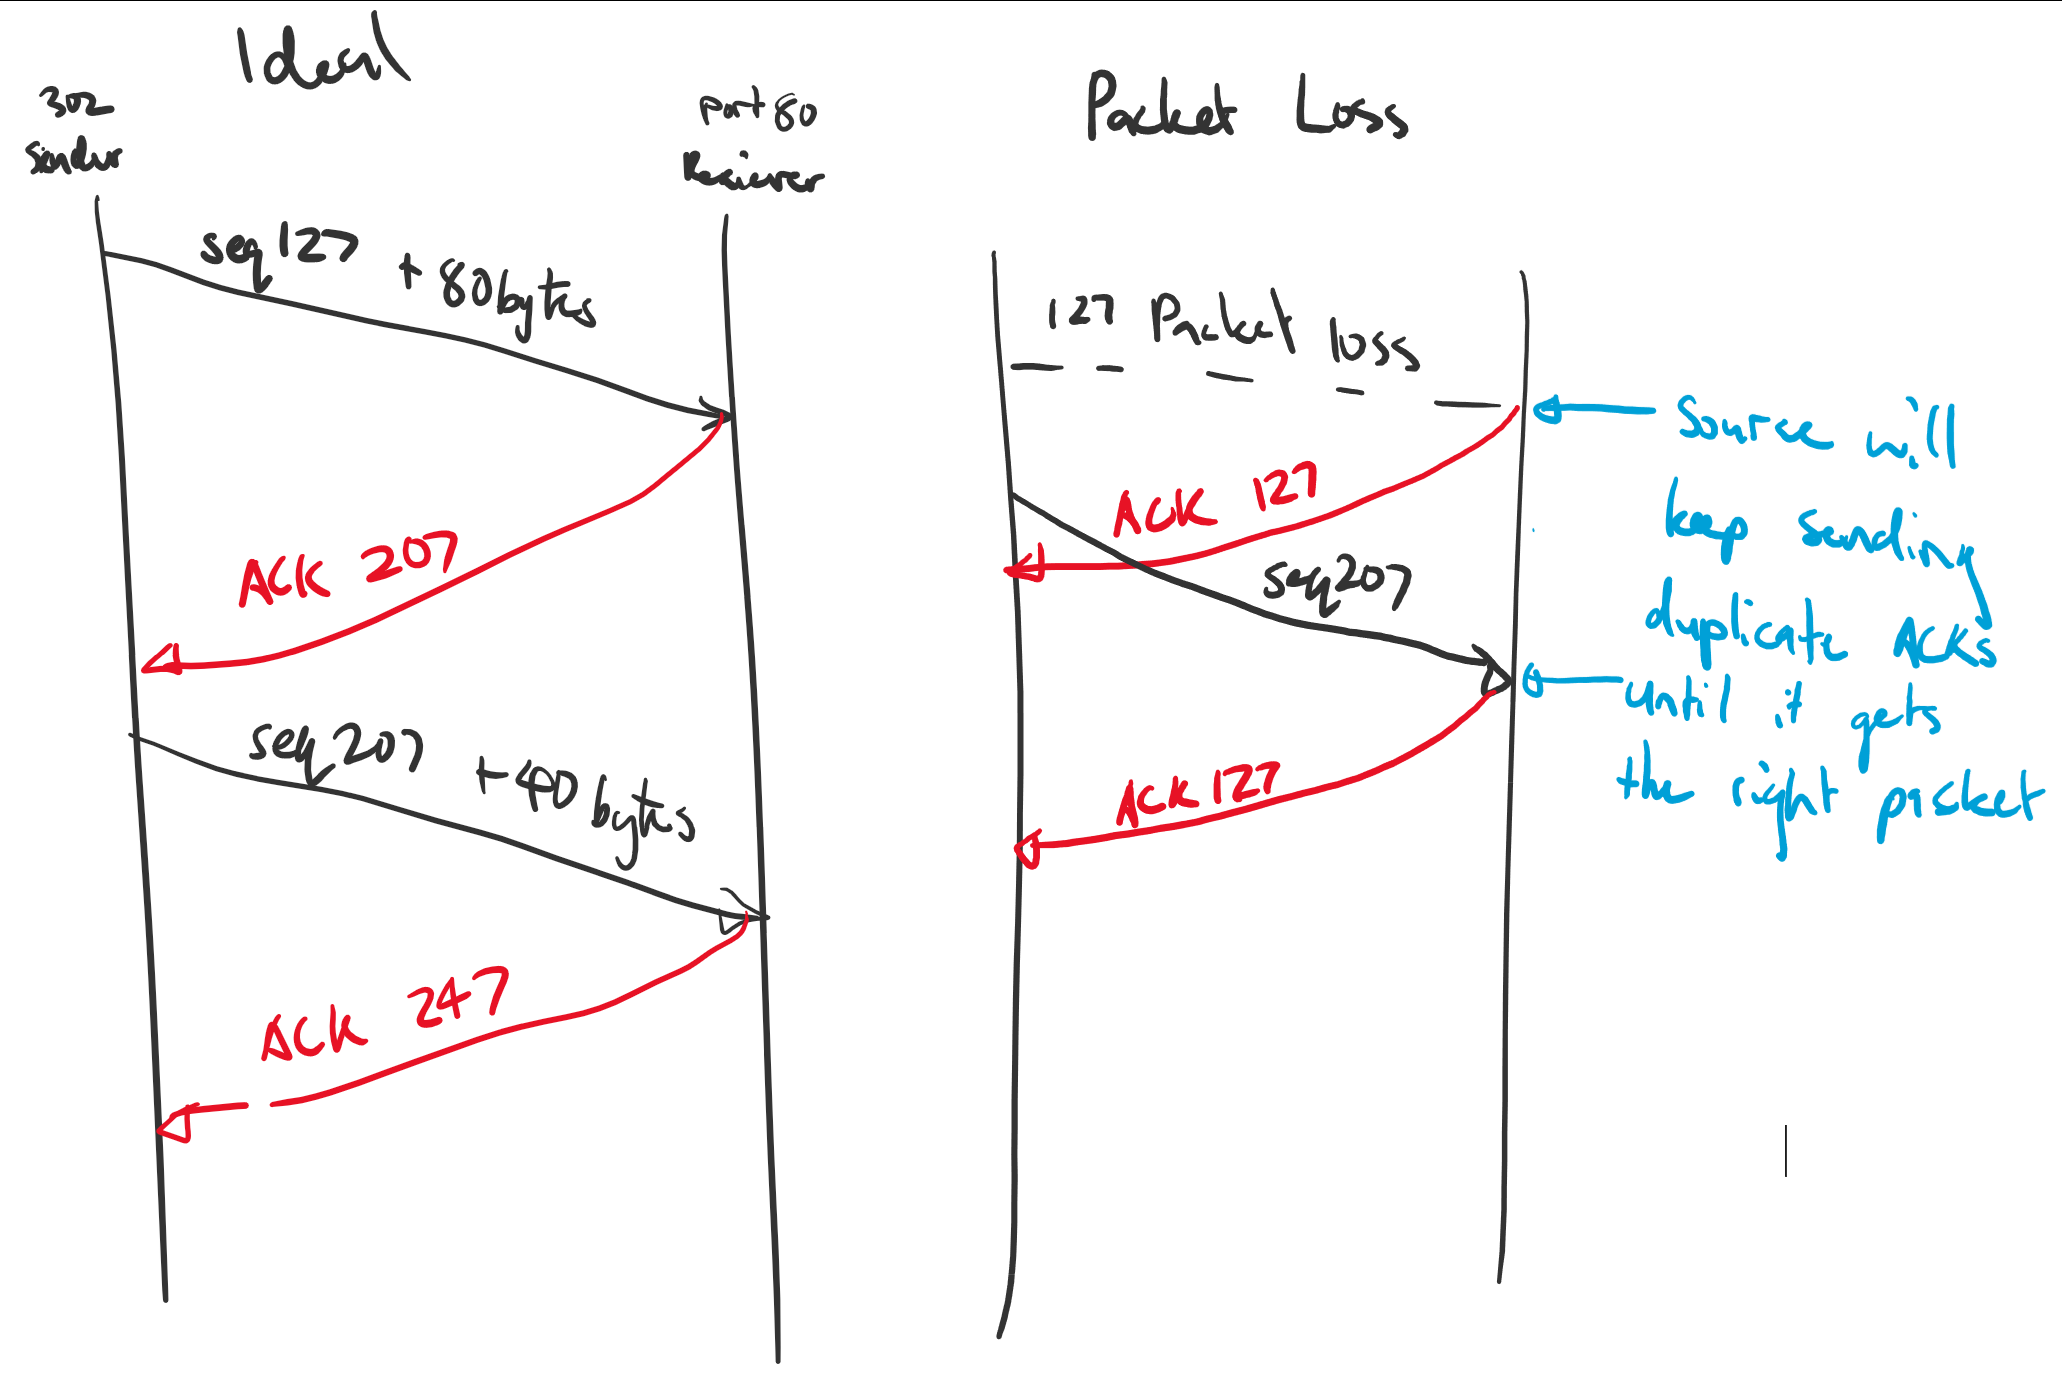 Ideal
302
Sender
port 80
Reciever
seq 127 + 80 bytes
ACK 207
seq 207 + 40 bytes
ACK 247
Packet Loss
127 Packet loss
ACK 127
seq 207
ACK 127
Source will
keep sending
duplicate ACKs
until it gets
the right packet